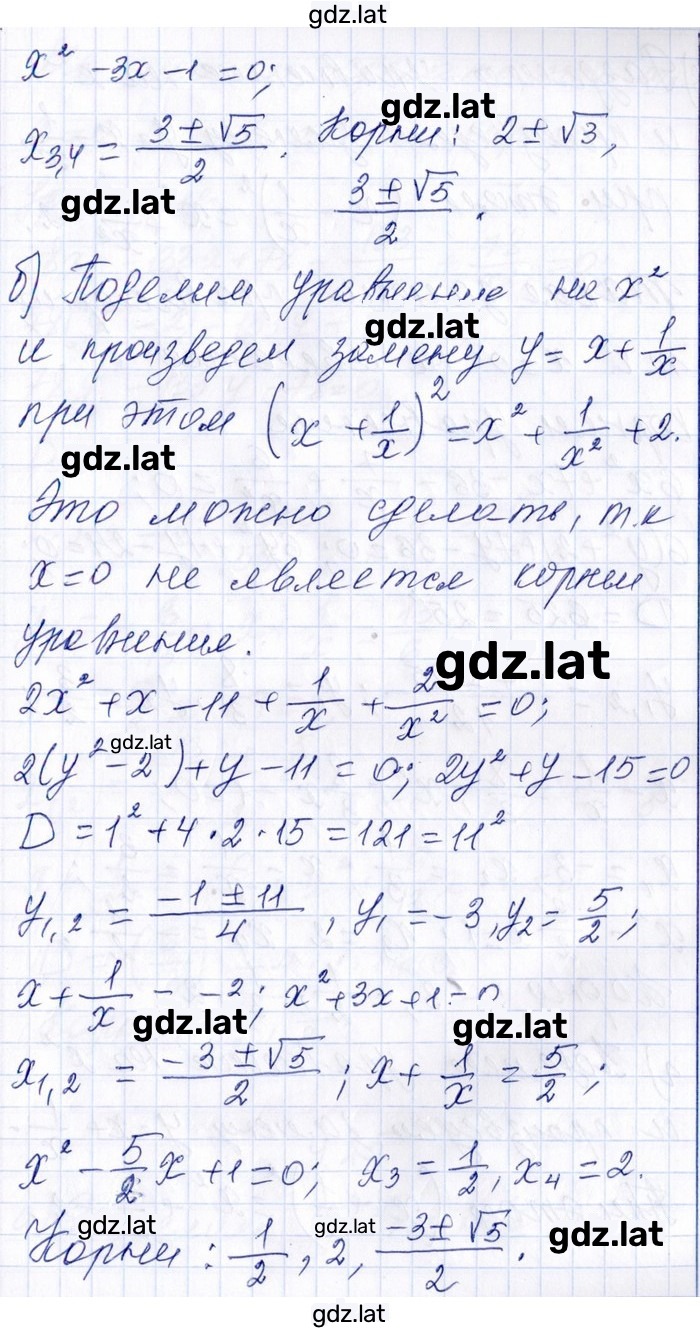 gdz.lat
x² - 3x - 1 = 0;
gdz.lat
x₃,₄ = (3 ± √5)/2. Корни: 2 ± √3,
gdz.lat
(3 ± √5)/2.
б) Поделим уравнение на x²
gdz.lat
и произведем замену y = x + 1/x
при этом (x + 1/x)² = x² + 1/x² + 2.
gdz.lat
Это можно сделать, т.к
x = 0 не является корнем
уравнения.
gdz.lat
2x² + x - 11 + 1/x + 2/x² = 0;
gdz.lat
2(y² - 2) + y - 11 = 0; 2y² + y - 15 = 0
D = 1² + 4 · 2 · 15 = 121 = 11²
y₁,₂ = (-1 ± 11)/4, y₁ = -3, y₂ = 5/2;
x + 1/x - -2; x² + 3x + 1 = 0
gdz.lat gdz.lat
x₁,₂ = (-3 ± √5)/2; x + 1/x = 5/2;
x² - 5/2 x + 1 = 0; x₃ = 1/2, x₄ = 2.
gdz.lat gdz.lat gdz.lat
Корни: 1/2, 2, (-3 ± √5)/2.
gdz.lat